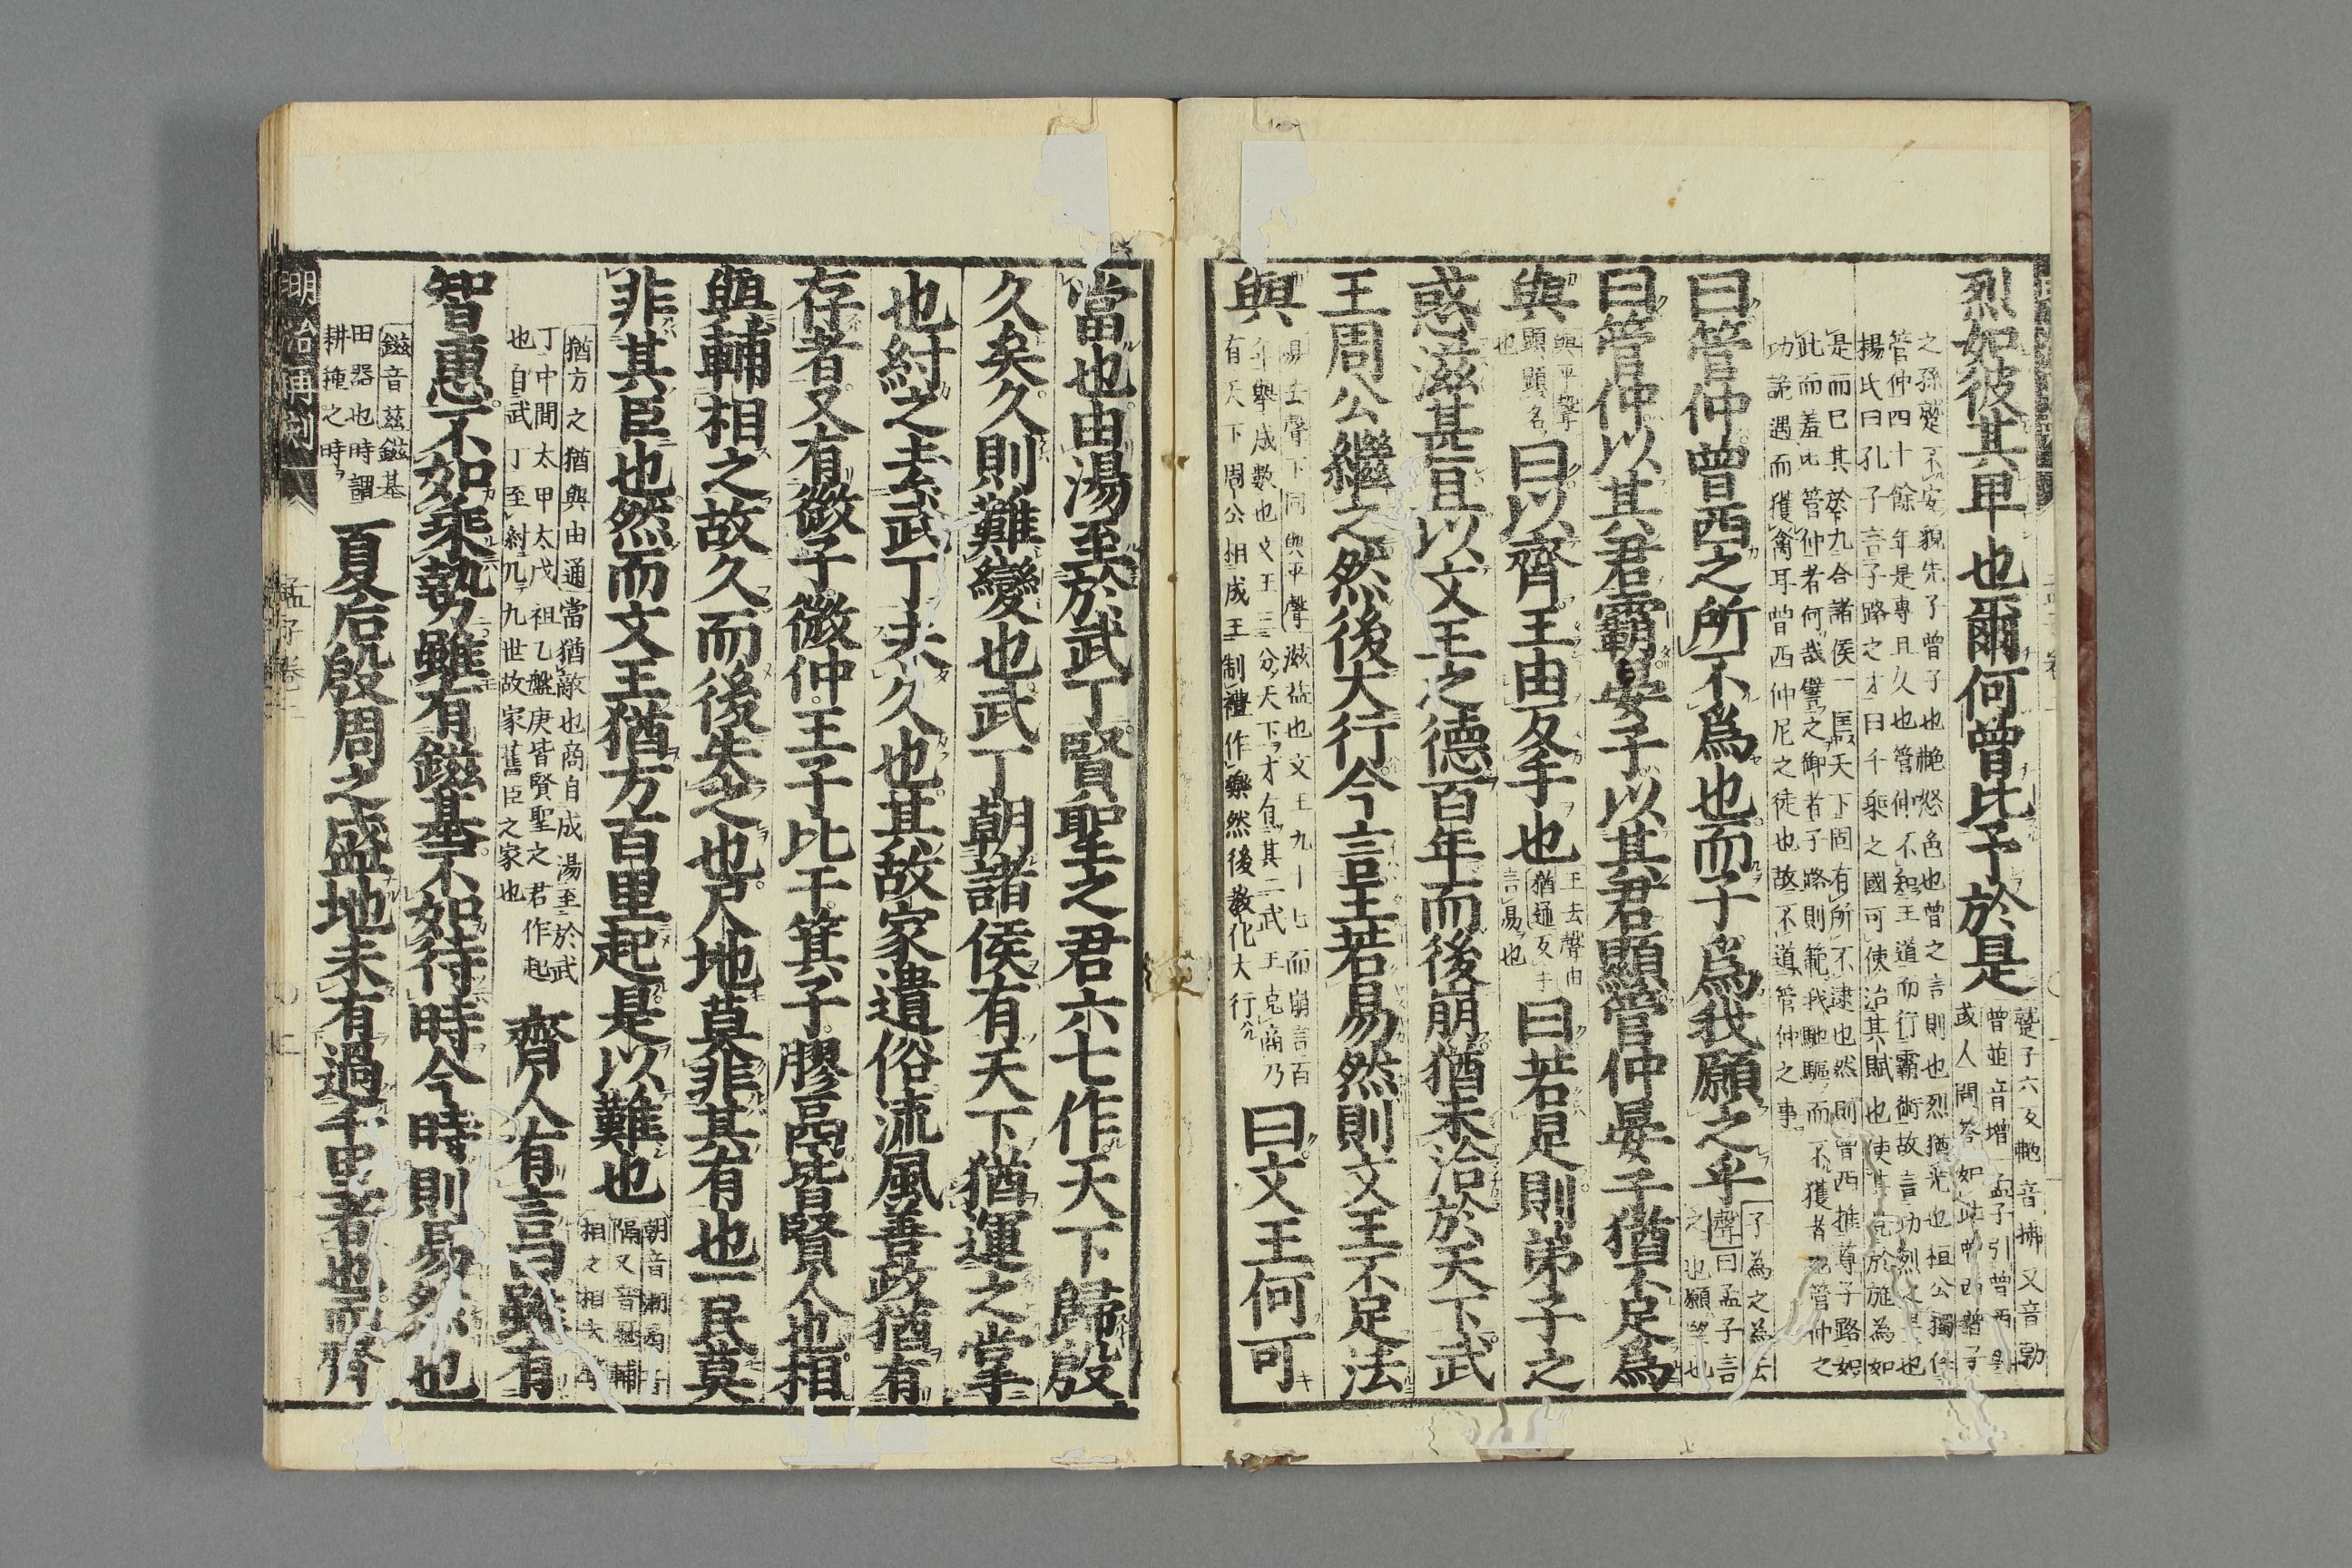 烈如彼其卑也爾何曾比予於是
蹵子六反艴音拂又音勃
曾並音增孟子引曾西與
或人問答如此曾西曾子
之孫蹵不安貌先子曾子也艴怒色也曾之言則也烈猶光也桓公獨任
管仲四十餘年是專且久也管仲不知王道而行霸術故言功烈之卑也
楊氏曰孔子言子路之才曰千乘之國可使治其賦也使其見於施為如
是而已其於九合諸侯一匡天下固有所不逮也然則曾西推尊子路如
此而羞比管仲者何哉譬之御者子路則範我馳驅而不獲者也管仲之
功詭遇而獲禽耳曾西仲尼之徒也故不道管仲之事
曰管仲曾西之所不爲也而子爲我願之乎
子為之為去
聲曰孟子言
之也願望也
曰管仲以其君霸晏子以其君顯管仲晏子猶不足爲
與
與平聲
顯顯名
也
曰以齊王由反手也
王去聲由
猶通反手
言易也
曰若是則弟子之
惑滋甚且以文王之德百年而後崩猶未洽於天下武
王周公繼之然後大行今言王若易然則文王不足法
與
易去聲下同與平聲滋益也文王九十七而崩言百
年舉成數也文王三分天下才有其二武王克商乃
有天下周公相成王制禮作樂然後教化大行
曰文王何可
當也由湯至於武丁賢聖之君六七作天下歸殷
久矣久則難變也武丁朝諸侯有天下猶運之掌
也紂之去武丁未久也其故家遺俗流風善政猶有
存者又有微子微仲王子比干箕子膠鬲皆賢人也相
與輔相之故久而後失之也尺地莫非其有也一民莫
非其臣也然而文王猶方百里起是以難也
朝音潮鬲音
隔又音歷輔
相之相去聲
猶方之猶與由通當猶敵也商自成湯至於武
丁中間太甲太戊祖乙盤庚皆賢聖之君作起
也自武丁至紂凡九世故家舊臣之家也
齊人有言曰雖有
智惠不如乘勢雖有鎡基不如待時今時則易然也
鎡音茲鎡基
田器也時謂
耕種之時
夏后殷周之盛地未有過千里者也而齊
明治再刻
孟子卷二